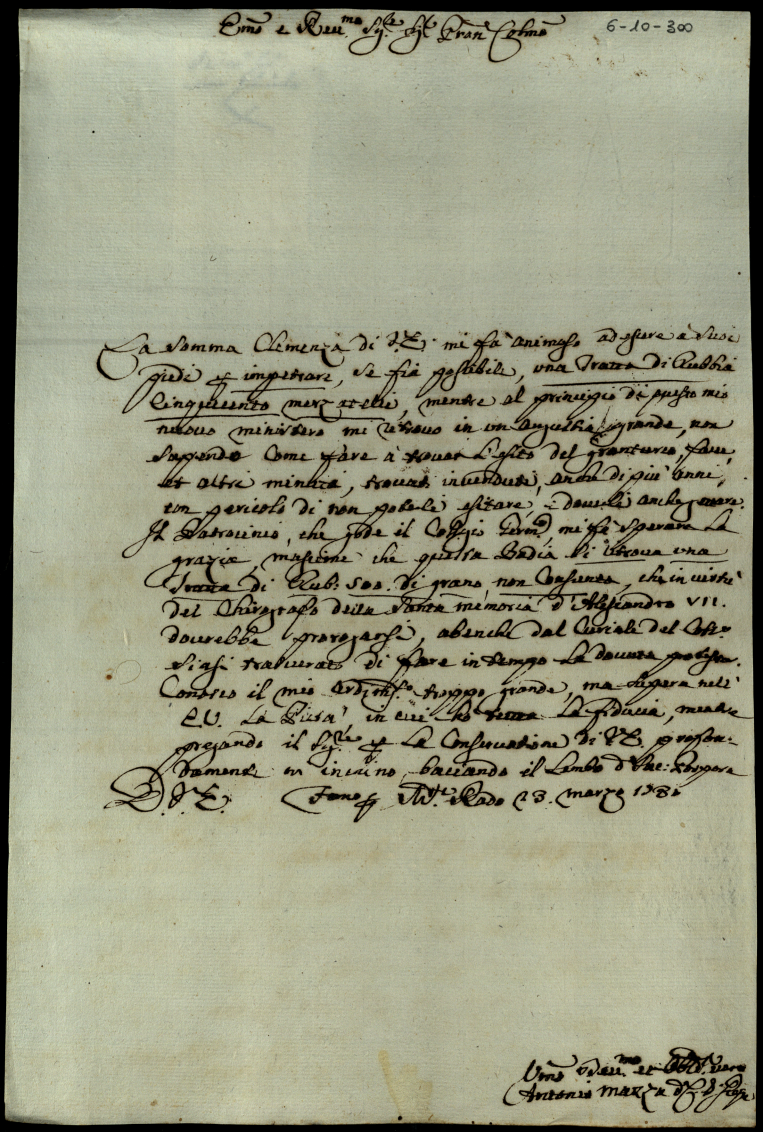 Emo e Reu.mo Sig.re Sig.re Pran Colmo
6-10-300
La somma Clemenza di V.E. mi fà animoso ad esere à suoi
piedi p impetrare, se fia possibile, una Tratta di Rubbia
Cinquecento, mentre al principio di questo mio
nuouo ministero mi ritrouo in un angustia grande, non
sapendo come fare à trouar l'esito del granturco, faue,
et altri minuti, trouati inuenduti, anche di più anni,
con pericolo di non poterli esitare, e douerli anche
Il Patrocinio, che gode il Collegio Germ.co, mi fà sperare la
grazia, massime che questa Badia si ritroua una
Tratta di Rub: 500. di grano, non Consunta, che in uirtù
del Chirografo della Santa memoria d'Alessandro VII.
dourebbe prorogarsi, abenche dal Curiale del
siasi trascurato di fare in tempo la douuta
Conosco il mio ardim.to troppo grande, ma supera nell'
E.V. La Pietà, in cui hò tutta la fiducia, mentre
pregando il Sig.re p la Conseruatione di V.E. profon-
damente m'inchino, baciando il Lembo d Sac: Porpora
D. V.E. Fano p 23. marzo
Umo et
Antonio mazza